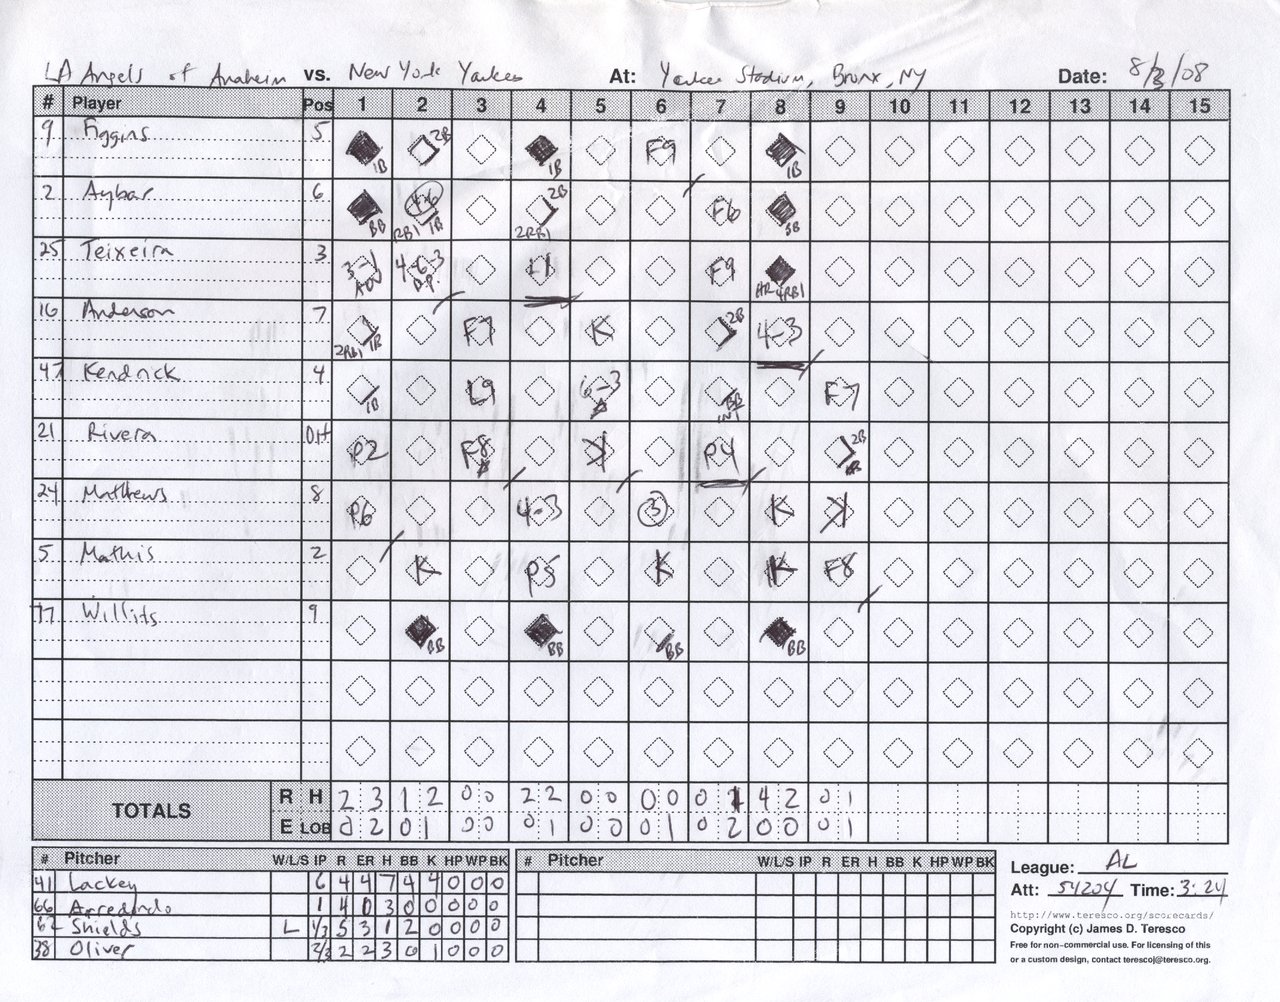 LA Angels of Anaheim vs. New York Yankees At: Yankee Stadium, Bronx, NY Date: 8/3/08
# Player Pos 1 2 3 4 5 6 7 8 9 10 11 12 13 14 15
9 Figgins 5 1B 2B 1B F9 1B
2 Aybar 6 BB 4-6 RBI 1B 2B 2RBI F6 BB
25 Teixeira 3 3-1 ADV 4-6-3 D.P. L1 F9 HR 4RBI
16 Anderson 7 2RBI 1B F7 K 2B 4-3
47 Kendrick 4 1B L9 6-3 BB INT F7
21 Rivera DH P2 F8 K P4 2B
24 Matthews 8 P6 4-3 3 K K
5 Mathis 2 K P5 K K F8
77 Willits 9 BB BB BB BB
TOTALS R H 2 3 1 2 0 0 2 2 0 0 0 0 0 1 4 2 0 1
E LOB 0 2 0 1 0 0 0 1 0 0 0 1 0 2 0 0 0 1
# Pitcher W/L/S IP R ER H BB K HP WP BK # Pitcher W/L/S IP R ER H BB K HP WP BK
41 Lackey 6 4 4 7 4 4 0 0 0
66 Arredondo 1 4 0 3 0 0 0 0 0
62 Shields L 1/3 5 3 1 2 0 0 0 0
38 Oliver 2/3 2 2 3 0 1 0 0 0
League: AL
Att: 54204 Time: 3:24
http://www.teresco.org/scorecards/
Copyright (c) James D. Teresco
Free for non-commercial use. For licensing of this
or a custom design, contact terescoj@teresco.org.